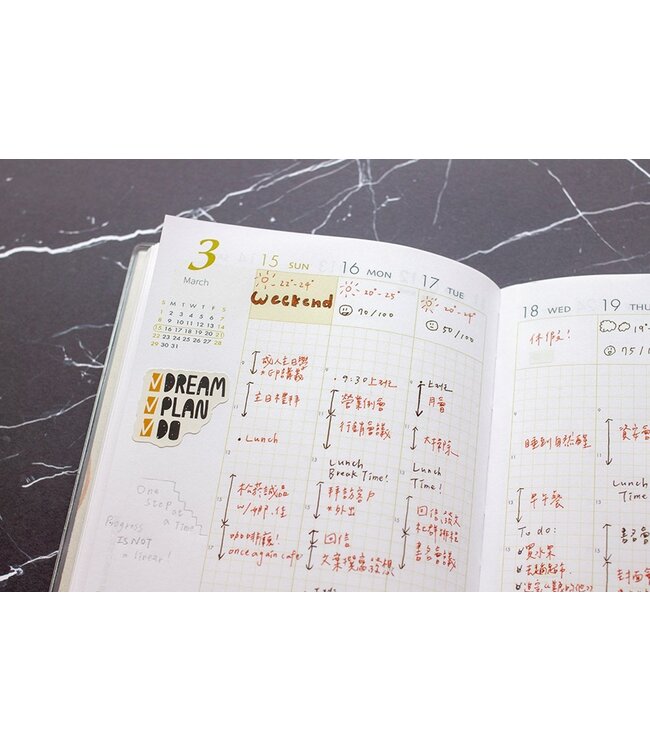 3
March
S M T W T F S
1 2 3 4 5 6 7
8 9 10 11 12 13 14
15 16 17 18 19 20 21
22 23 24 25 26 27 28
29 30 31
DREAM
PLAN
DO
One
step
at
a Time
Progress
IS NOT
a linear!
15 SUN
22°-24°
Weekend
成人主日學
主日禮拜
• Lunch
松菸誠品
咖啡廳!
once again cafe
16 MON
20°-25°
90/100
• 9:30上班
營業例會
行銷會議
Lunch
Break Time!
拜訪客戶
*外出
回信
文案撰寫發想
17 TUE
20°-24°
50/100
上班
月會
大掃除
Lunch
Time!
回信
社群
會議
18 WED
休假!
睡到自然醒
早午餐
To do:
買水果
19 THU
19°-
75/1
Lunch
Time